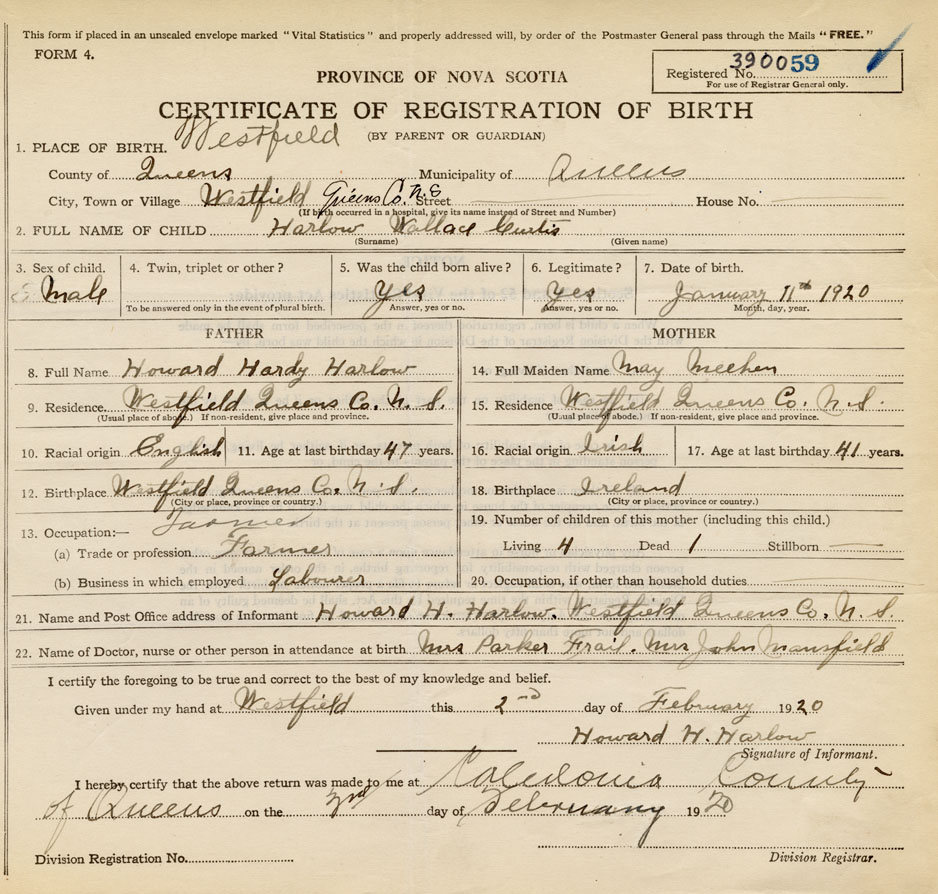 This form if placed in an unsealed envelope marked "Vital Statistics" and properly addressed will, by order of the Postmaster General pass through the Mails "FREE."
FORM 4.
390059
Registered No.
For use of Registrar General only.
PROVINCE OF NOVA SCOTIA
CERTIFICATE OF REGISTRATION OF BIRTH
(BY PARENT OR GUARDIAN)
1. PLACE OF BIRTH. Westfield
County of Queens Municipality of Queens
City, Town or Village Westfield Queens Co. N.S Street House No.
(If birth occurred in a hospital, give its name instead of Street and Number)
2. FULL NAME OF CHILD Harlow Wallace Curtis
(Surname) (Given name)
3. Sex of child. 4. Twin, triplet or other? 5. Was the child born alive? 6. Legitimate? 7. Date of birth.
Male Yes Yes January 11th 1920
To be answered only in the event of plural birth. Answer, yes or no. Answer, yes or no. Month, day, year.
FATHER MOTHER
8. Full Name Howard Hardy Harlow 14. Full Maiden Name May Meehen
9. Residence Westfield Queens Co. N. S. 15. Residence Westfield Queens Co. N. S.
(Usual place of abode.) If non-resident, give place and province. (Usual place of abode.) If non-resident, give place and province.
10. Racial origin English 11. Age at last birthday 47 years. 16. Racial origin Irish 17. Age at last birthday 41 years.
12. Birthplace Westfield Queens Co. N. S. 18. Birthplace Ireland
(City or place, province or country.) (City or place, province or country.)
Farmer
13. Occupation:— 19. Number of children of this mother (including this child.)
(a) Trade or profession Farmer Living 4 Dead 1 Stillborn
(b) Business in which employed Labourer 20. Occupation, if other than household duties
21. Name and Post Office address of Informant Howard H. Harlow. Westfield Queens Co. N. S.
22. Name of Doctor, nurse or other person in attendance at birth Mrs Parker Frail. Mrs John Mansfield
I certify the foregoing to be true and correct to the best of my knowledge and belief.
Given under my hand at Westfield this 2nd day of February 1920
Howard H. Harlow
Signature of Informant.
I hereby certify that the above return was made to me at Caledonia County
of Queens on the 3rd day of February 1920
Division Registration No. Division Registrar.